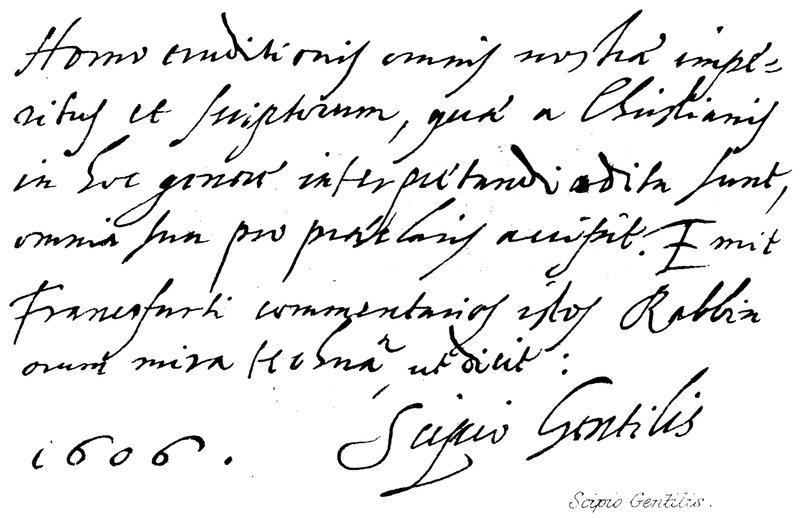 Homo eruditionis omnis nostrae impe=
ritus et scriptorum, quae a Christianis
in hoc genere interpretandi edita sunt,
omnia sua pro praeclaris accipit. Emit
Francofurti commentarios istos Rabbin
orum mira techna, ut dicit:
1606. Scipio Gentilis
Scipio Gentilis.